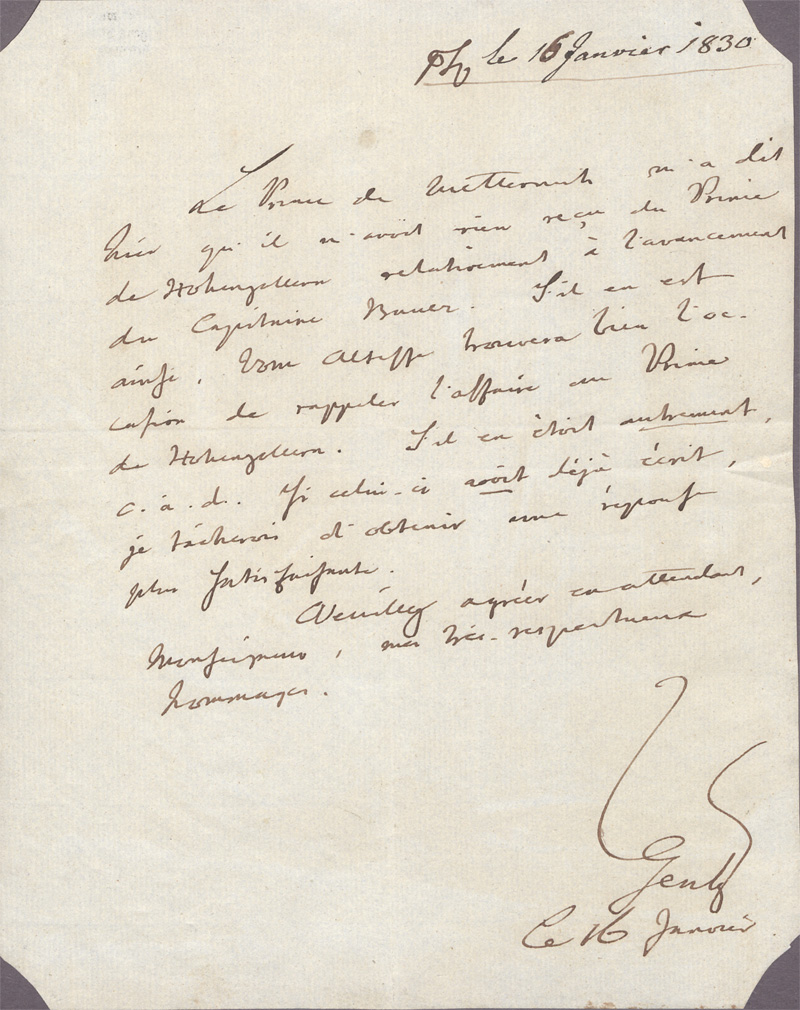 le 16 Janvier 1830
Le Prince de Metternich m'a dit
hier qu'il n'avoit rien reçu du Prince
de Hohenzollern relativement à l'avancement
du Capitaine Bauer. S'il en est
ainsi, Votre Altesse trouvera bien l'oc-
casion de rappeler l'affaire au Prince
de Hohenzollern. S'il en étoit autrement,
c. à. d. Si celui-ci avoit déjà écrit,
je tâcherois d'obtenir une réponse
plus satisfaisante.
Veuillez agréer en attendant,
Monseigneur, mes très-respectueux
hommages.
Gentz
Ce 16 Janvier